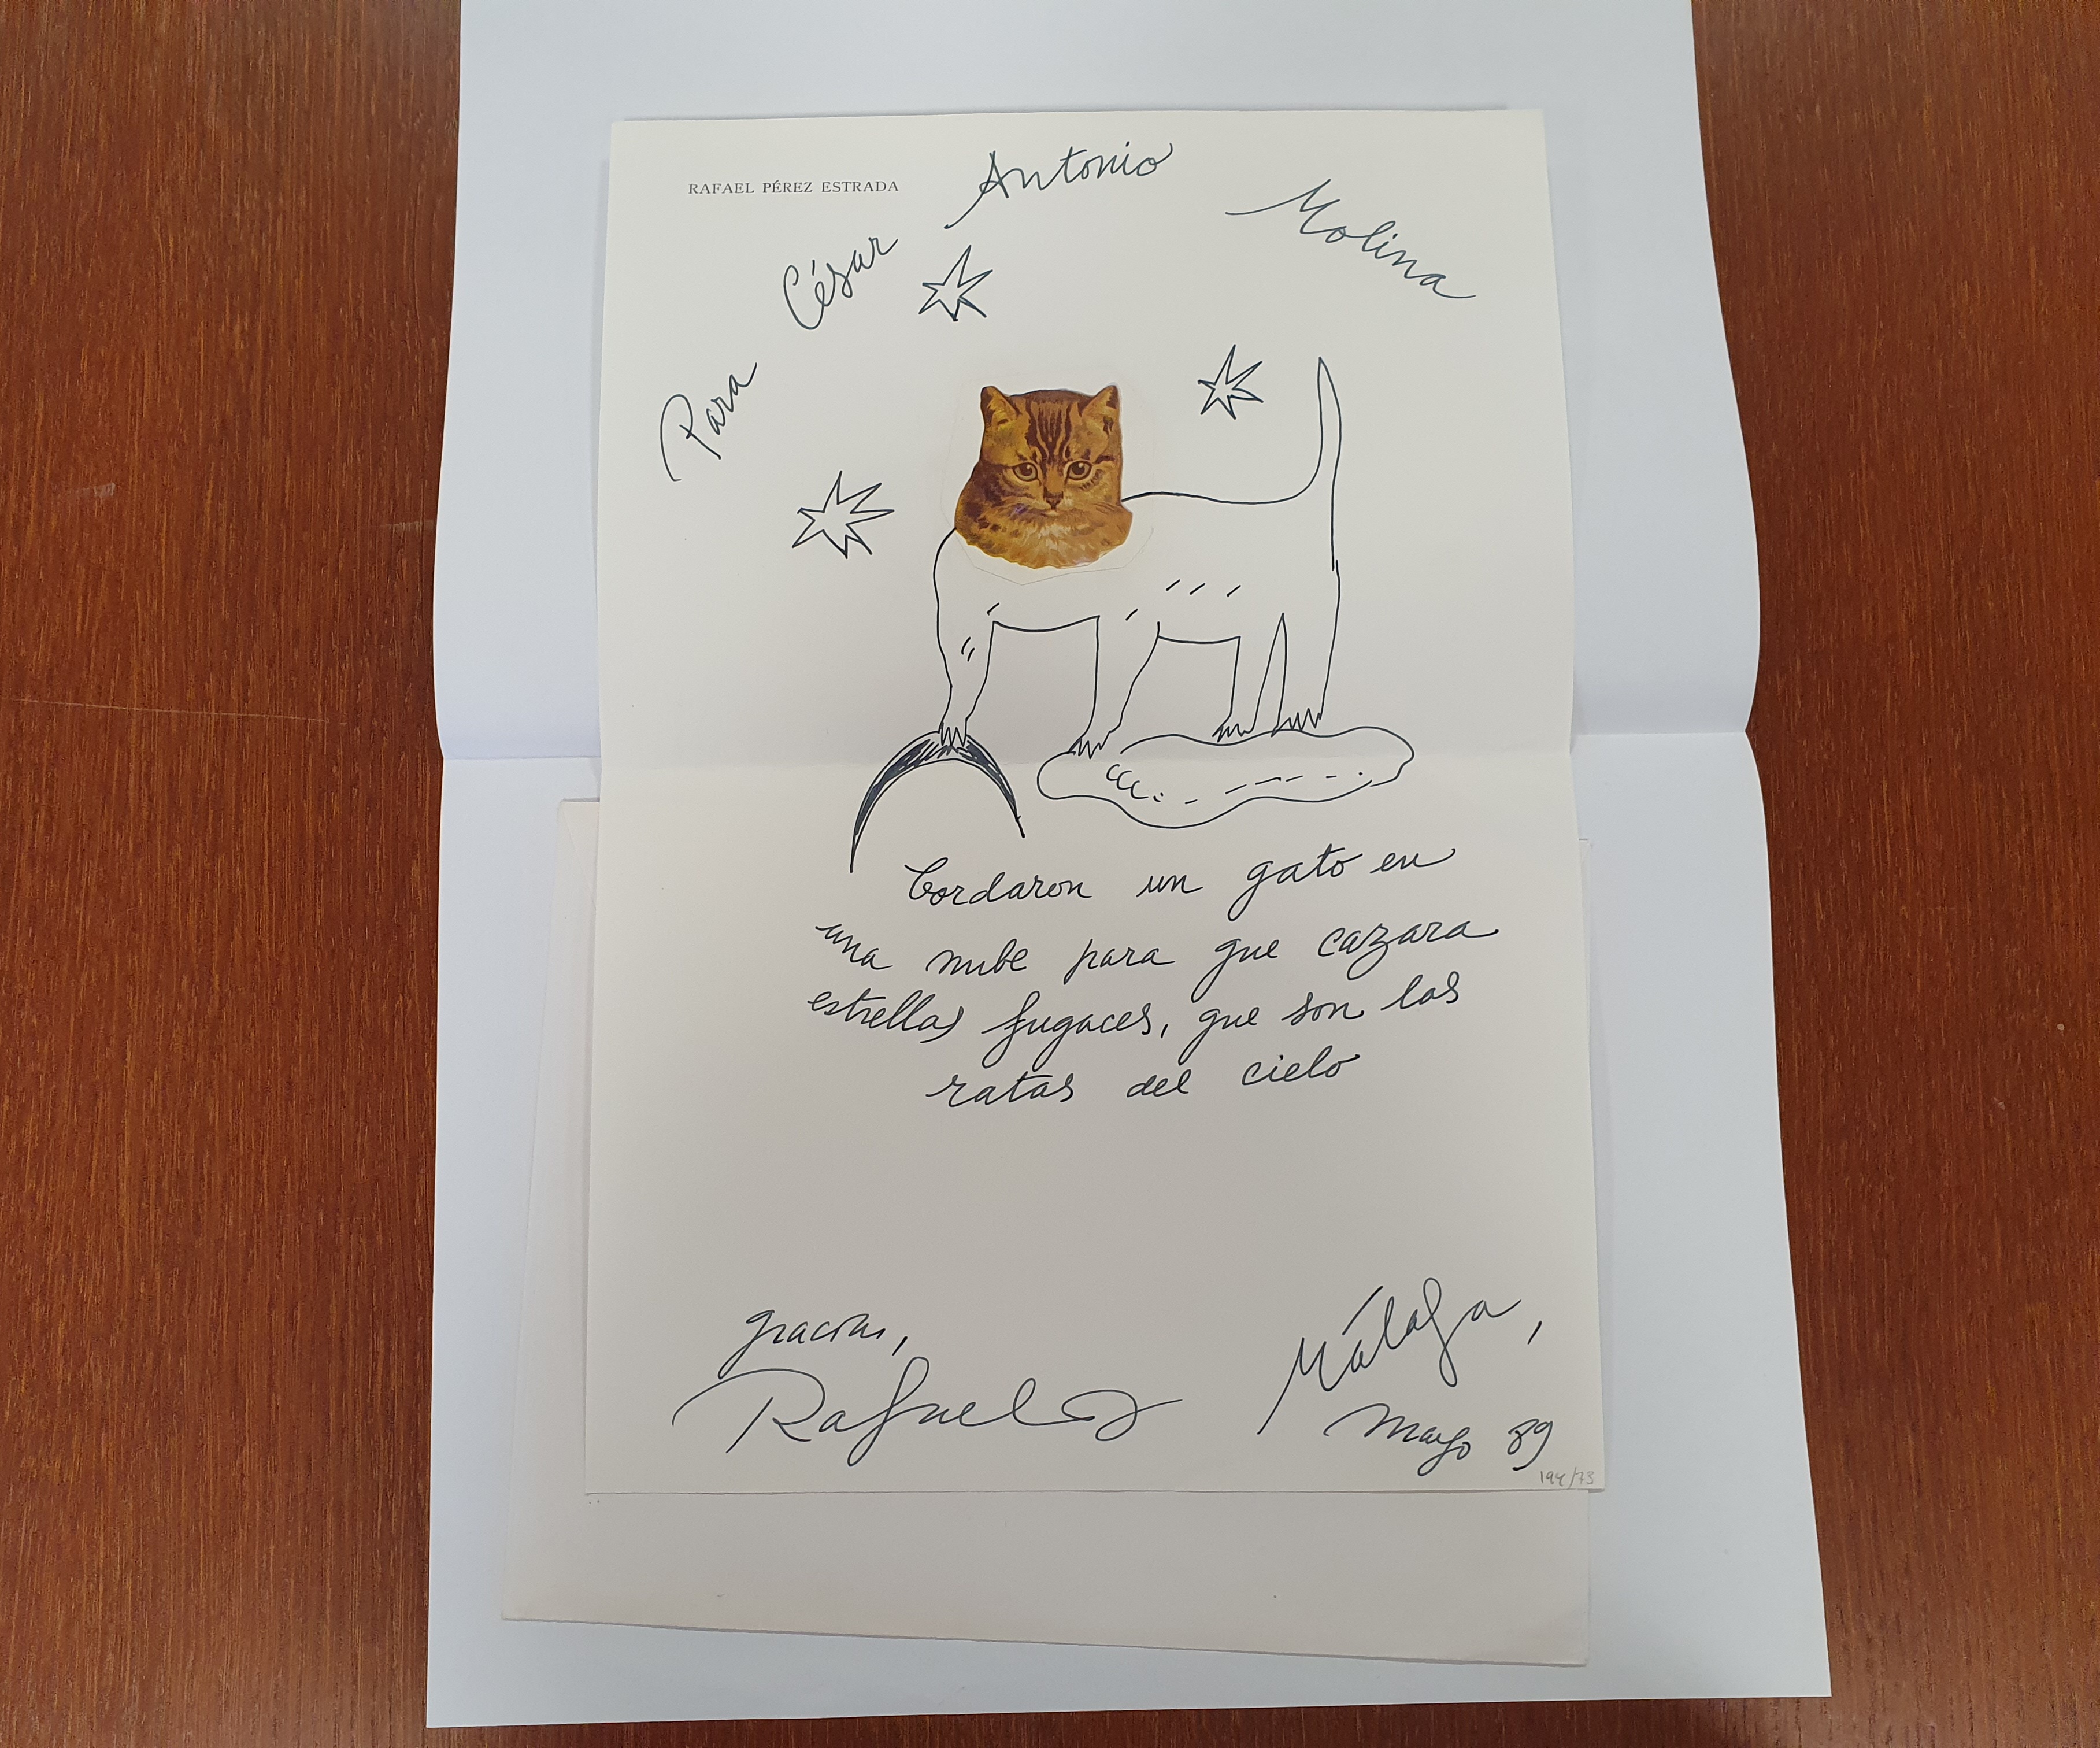 RAFAEL PÉREZ ESTRADA
Para César Antonio Molina
bordaron un gato en
una nube para que cazara
estrellas fugaces, que son las
ratas del cielo
gracias,
Rafael
Málaga,
mayo 89
194/73